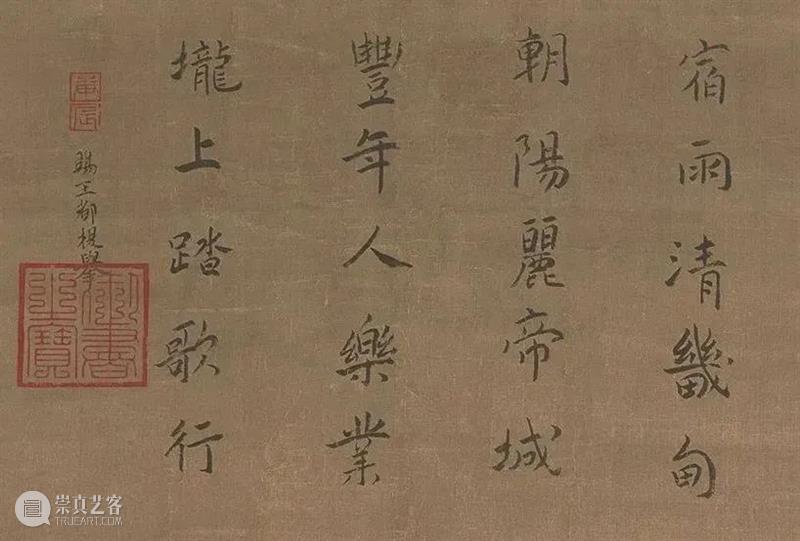 宿雨清畿甸
朝陽麗帝城
豐年人樂業
壠上踏歌行
庚辰
賜王都提舉
御書之寶
崇真艺客
TRUEART.COM